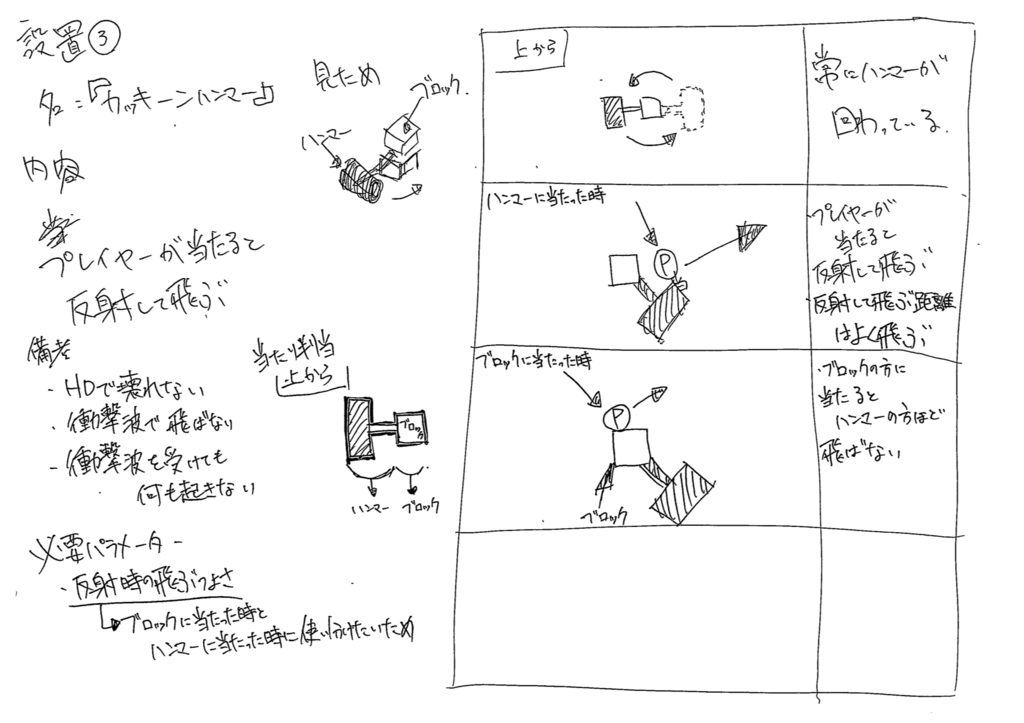 設置③
名:『カッキーンハンマー』
見ため
ブロック
ハンマー
内容
プレイヤーが当たると
反射して飛ぶ
備考
・HDで壊れない
・衝撃波で飛ばない
・衝撃波を受けても
何も起きない
当たり判当
上から
ブロック
ハンマー ブロック
必要パラメーター
・反射時の飛ぶつよさ
ブロックに当たった時と
ハンマーに当たった時に使い分けたいため
上から
常にハンマーが
回わっている。
ハンマーに当たった時
P
・プレイヤーが
当たると
反射して飛ぶ
反射して飛ぶ距離
はよく飛ぶ
ブロックに当たった時
P
ブロック
・ブロックの方に
当たると
ハンマーの方ほど
飛ばない